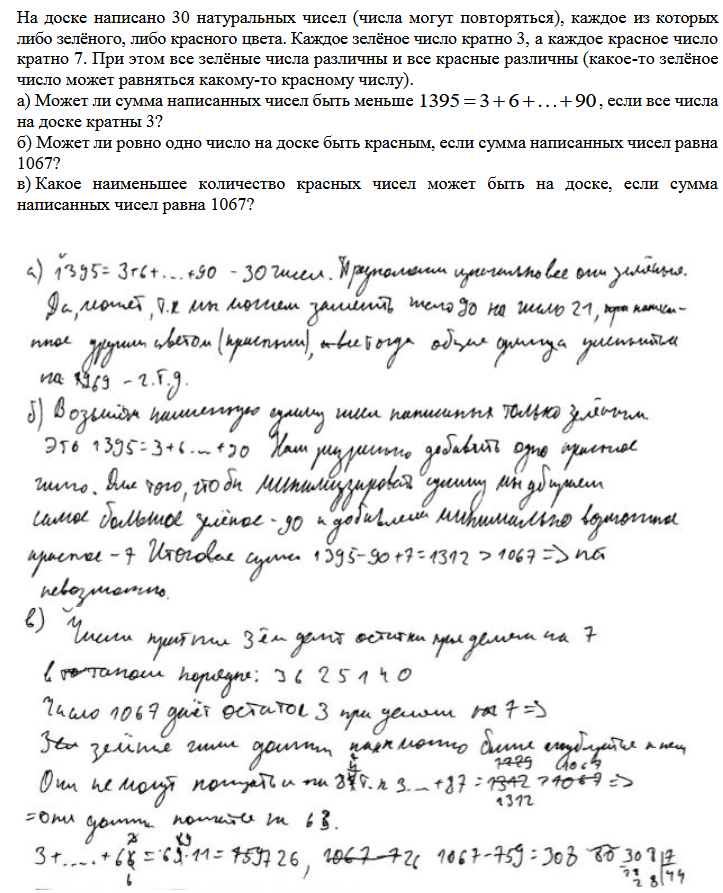 На доске написано 30 натуральных чисел (числа могут повторяться), каждое из которых
либо зелёного, либо красного цвета. Каждое зелёное число кратно 3, а каждое красное число
кратно 7. При этом все зелёные числа различны и все красные различны (какое-то зелёное
число может равняться какому-то красному числу).
а) Может ли сумма написанных чисел быть меньше 1395 = 3 + 6 + … + 90, если все числа
на доске кратны 3?
б) Может ли ровно одно число на доске быть красным, если сумма написанных чисел равна
1067?
в) Какое наименьшее количество красных чисел может быть на доске, если сумма
написанных чисел равна 1067?
а) 1395 = 3+6+...+90 - 30 чисел. Предположим изначально все они зелёные.
Да, может, т.к мы можем заменить число 90 на число 21,
другим цветом (красным), тогда общая сумма уменьшится
на 69 - ч.т.д.
б) Возьмём наименьшую сумму чисел написанных только зелёным
Это 1395 = 3+6...+90 Нам добавить одно красное
число. Для того, чтобы минимизировать сумму мы убираем
самое большое зелёное - 90 и добавляем минимально возможное
красное - 7 Итоговая сумма 1395-90+7=1312 > 1067 =>
невозможно.
в) Числа кратные 3ём дают остатки при делении на 7
в таком порядке: 3 6 2 5 1 4 0
Число 1067 даёт остаток 3 при делении на 7 =>
зелёные числа должны
Они не могут т.к 3...+87 = 1312 =>
=> они должны
3+.....+66 = 69·11 = 759, 1067-759=308 308 7
28 44